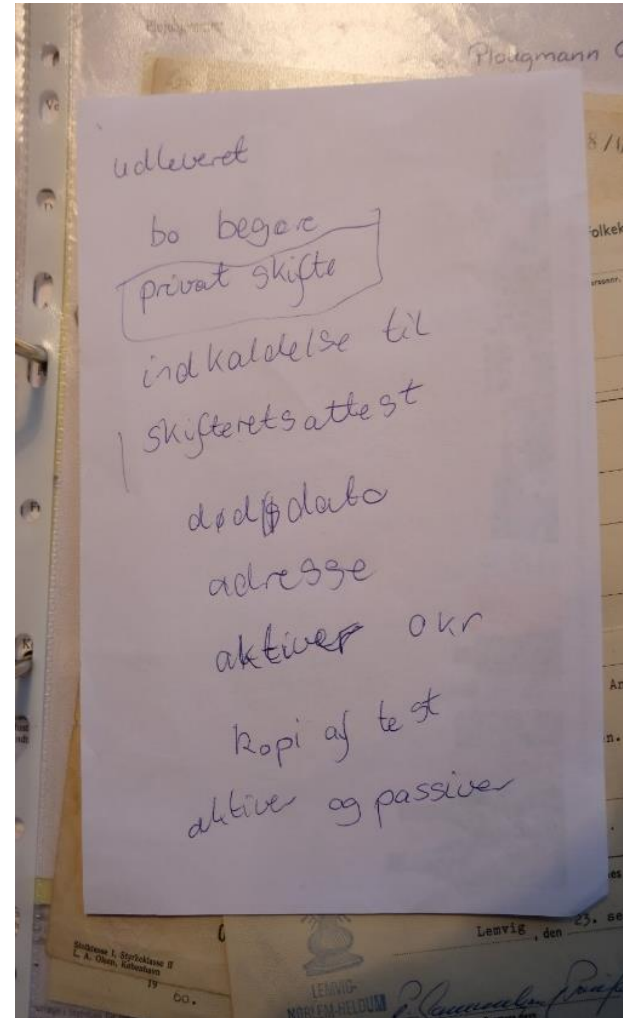 Plougmann
8/1
udleveret
bo begære
privat skifte
indkaldelse til
skifteretsattest
dødsdato
adresse
aktiver 0 kr
kopi af test
aktiver og passiver
Lemvig, den 23. se
L. A. Olsen, København
19 60.
LEMVIG-
NØRLEM-HELDUM